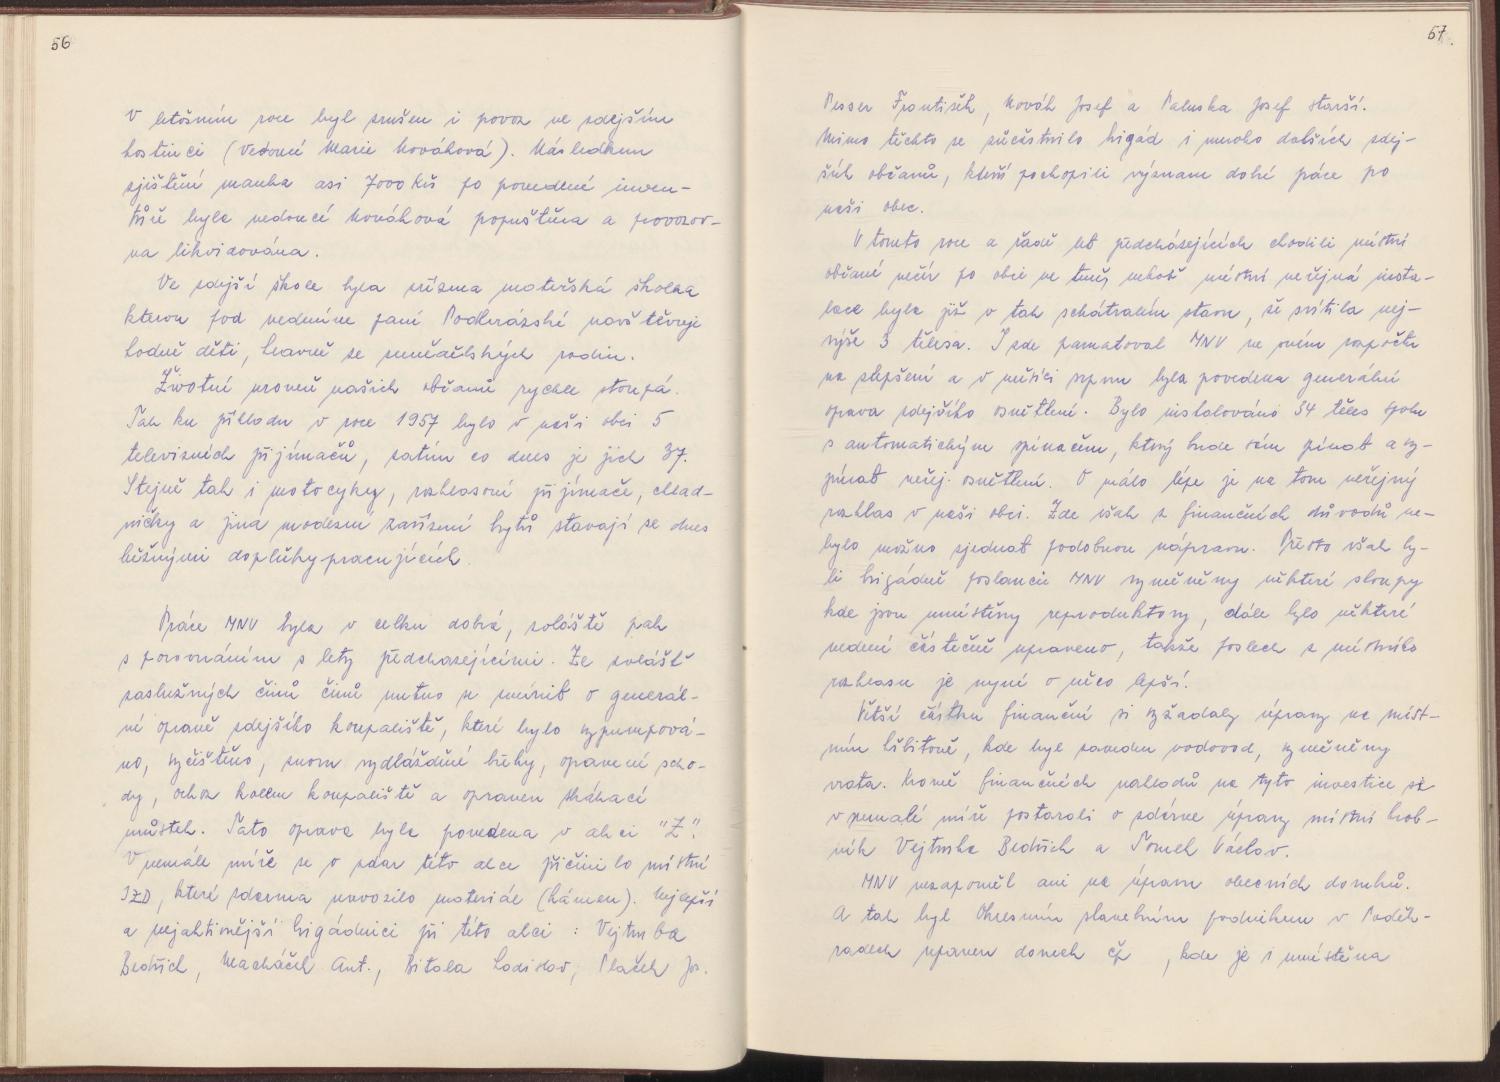 56
V letošním roce byl zrušen i povoz ve zdejším
hostinci (Vedoucí Marie Nováková). Následkem
zjištění manka asi 7000 Kčs po provedené inven-
tůře byla vedoucí Nováková propuštěna a provozov-
na likvidována.
Ve zdejší škole byla zřízena mateřská školka
kterou pod vedením paní Podhrázské navštěvuje
hodně dětí, hlavně ze zemědělských rodin.
Životní úroveň našich občanů rychle stoupá.
Tak ku příkladu v roce 1957 bylo v naší obci 5
televizních přijímačů, zatím co dnes je jich 37.
Stejně tak i motocykly, rozhlasové přijímače, chlad-
ničky a jina moderní zařízení bytů stavají se dnes
běžnými doplňky pracujících.
Práce MNV byla v celku dobrá, zvláště pak
s porovnáním s lety předcházejícími. Ze zvlášť
záslužných činů činů nutno se zmínit o generál-
ní opravě zdejšího koupaliště, které bylo vypumpová-
no, vyčištěno, znovu vydlážděné břehy, opravené scho-
dy, ochoz kolem koupaliště a opraven skákací
můstek. Tato oprava byla provedena v akci "Z".
V nemálé míře se o zdar této akce přičinilo místní
JZD, které zdarma navozilo materiál (kámen). Nejlepší
a nejaktivnější brigádníci při této akci : Vejtruba
Bedřich, Macháček Ant., Pitala Ladislav, Plaček Jos.
57.
Pesser František, Novák Josef a Paluska Josef starší.
Mimo těchto se zúčastnilo brigád i mnoho dalších zdej-
ších občanů, kteří pochopili význam dobré práce po
naši obec.
V tomto roce a řadě let předcházejících chodili místní
občané večer po obci ve tmě, neboť místní veřejná insta-
lace byla již v tak zchátralém stavu, že svítila nej-
výše 3 tělesa. I zde pamatoval MNV ve svém rozpočtu
na zlepšení a v měsíci srpnu byla provedena generální
oprava zdejšího osvětlení. Bylo instalováno 34 těles spolu
s automatickým spínačem, který bude sám zapínat a vy-
pínat veřej. osvětlení. O málo lépe je na tom veřejný
rozhlas v naší obci. Zde však z finančních důvodů ne-
bylo možno sjednat podobnou nápravu. Přesto však by-
li brigádně poslanci MNV vyměněny některé sloupy
kde jsou umístěny reproduktory, dále bylo některé
vedení částečně upraveno, takže poslech z místního
rozhlasu je nyní o něco lepší.
Větší částku finanční si vyžádaly úpravy na míst-
ním hřbitově, kde byl zaveden vodovod, vyměněny
vrata. Kromě finančních nákladů na tyto investice se
v nemalé míře postarali o zdárné úpravy místní hrob-
ník Vejtruba Bedřich a Tomek Václav.
MNV nezapoměl ani na úpravu obecních domků.
A tak byl Okresním stavebním podnikem v Poděb-
radech upraven domek čp , kde je i umístěna